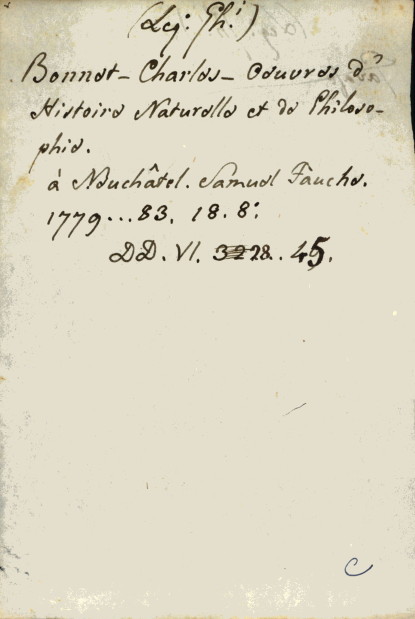 (Lej: Ph:)
Bonnet - Charles - Oeuvres d'
Histoire Naturelle et de Philoso-
phie.
à Neuchâtel. Samuel Fauche.
1779...83. 18. 8:
DD. VI. 45.
C